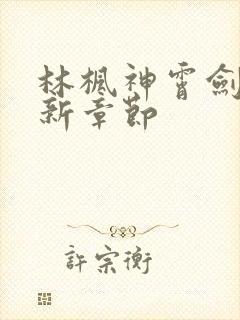 林楓神霄劍
新章節
許宗衡